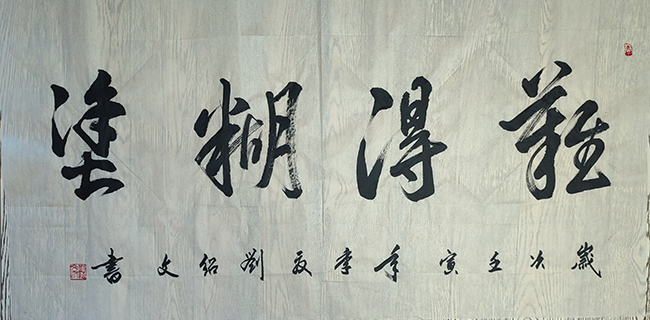 難得糊塗
歲次壬寅年季夏劉紹文書